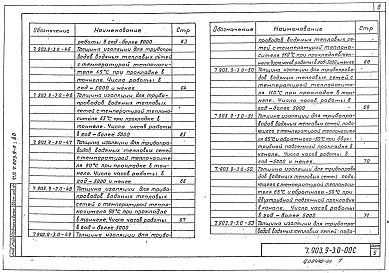 6
Обозначение Наименование Стр
работы в год более 5000 63
7.903.9-3.0-45 Толщина изоляции для трубопро-
водов водяных тепловых сетей
с температурой теплоноси-
теля 65°С при прокладке в
тоннеле. Число часов работы в
год – 5000 и менее 64
7.903.9-3.0-46 Толщина изоляции для трубо-
проводов водяных тепловых
сетей с температурой теплоно-
сителя 65°С при прокладке в
тоннеле. Число часов работы
в год – более 5000 65
7.903.9-3.0-47 Толщина изоляции для трубопро-
водов водяных тепловых сетей
с температурой теплоноси-
теля 90°С при прокладке в тон-
неле. Число часов работы в
год – 5000 и менее 66
7.903.9-3.0-48 Толщина изоляции для трубо-
проводов водяных тепловых
сетей с температурой тепло-
носителя 90°С при прокладке
в тоннеле. Число часов работы
в год – более 5000 67
7.903.9-3.0-49 Толщина изоляции для трубо-
Обозначение Наименование Стр
проводов водяных тепловых се-
тей с температурой теплоно-
сителя 110°С при прокладке в
тоннеле. Число часов работы в
год – 5000 и менее 68
7.903.9-3.0-50 Толщина изоляции для трубопрово-
дов водяных тепловых сетей с
температурой теплоносителя
110°С при прокладке в тон-
неле. Число часов работы в
год – более 5000 69
7.903.9-3.0-51 Толщина изоляции для трубопрово-
дов водяных тепловых сетей
с температурой теплоносителя
при двух-
трубной подземной прокладке
в канале. Число часов работы в
год – 5000 и менее 70
7.903.9-3.0-52 Толщина изоляции для трубопро-
водов водяных тепловых сетей
с температурой теплоноси-
теля при
двухтрубной подземной прокладке
в канале. Число часов работы
в год – более 5000 71
7.903.9-3.0-53 Толщина изоляции для трубопро-
водов водяных тепловых сетей
7.903.9-3.0-00С
5